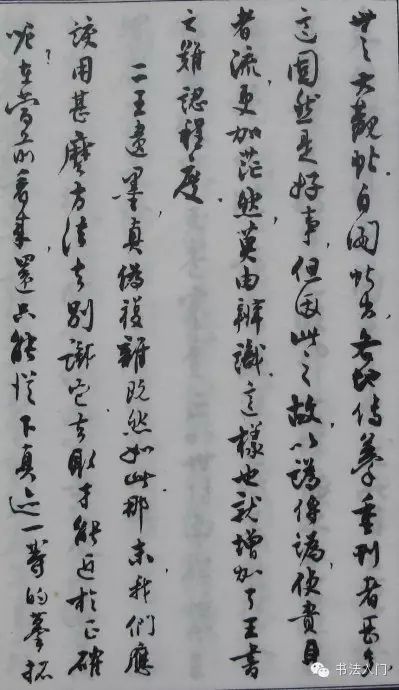 世之大觀帖。自閣帖出,各地傳摹重刊者甚多
這固然是好事,但因此之故,以譌傳譌,使貴耳
者流,更加茫然莫由辨識,這樣也就增加了王書
之難認程度。
二王遺墨真僞複雜既然如此,那末,我們應
該用甚麼方法去別識它,去取才能近於正確
呢?在當前看來,還只能從下真迹一等的摹拓
书法入门